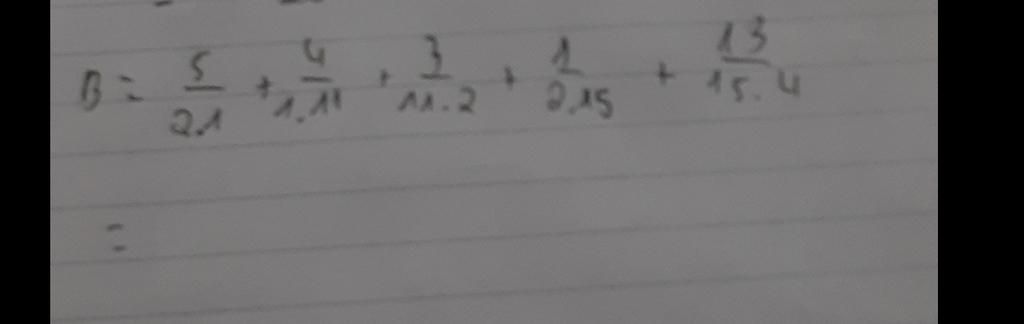 B = 5/2.1 + 4/1.11 + 3/11.2 + 1/2.15 + 13/15.4
=